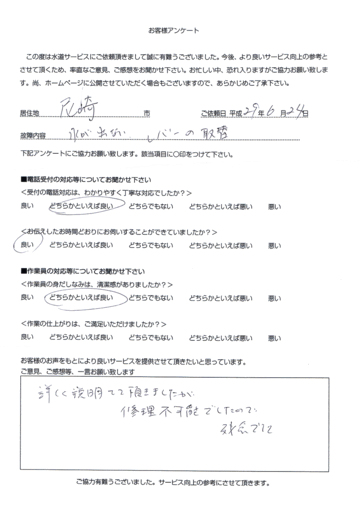 お客様アンケート
この度は水道サービスにご依頼頂きまして誠に有難うございました。今後、より良いサービス向上の参考と
させて頂くため、率直なご意見、ご感想をお聞かせ下さい。お忙しい中、恐れ入りますがご協力お願い致しま
す。尚、ホームページに公開させていただく場合もございますので、あらかじめご了承下さい。
居住地 尼崎 市 ご依頼日 平成 29年 6月 24日
故障内容 水が出ない レバーの取替
下記アンケートにご協力お願い致します。該当項目に〇印をつけて下さい。
■電話受付の対応等についてお聞かせ下さい
<受付の電話対応は、わかりやすく丁寧な対応でしたか?>
良い どちらかといえば良い どちらでもない どちらかといえば悪い 悪い
<お伝えしたお時間どおりにお伺いすることができていましたか?>
良い どちらかといえば良い どちらでもない どちらかといえば悪い 悪い
■作業員の対応等についてお聞かせ下さい
<作業員の身だしなみは、清潔感がありましたか?>
良い どちらかといえば良い どちらでもない どちらかといえば悪い 悪い
<作業の仕上がりは、ご満足いただけましたか?>
良い どちらかといえば良い どちらでもない どちらかといえば悪い 悪い
お客様のお声をもとにより良いサービスを提供させて頂きたいと思っています。
ご意見、ご感想等、一言お願い致します
詳しく説明して頂きましたが
修理不可能でしたので
残念でした
ご協力有難うございました。サービス向上の参考にさせて頂きます。